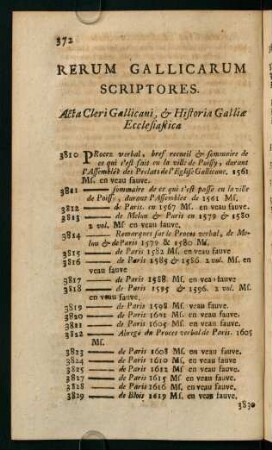 372
RERUM GALLICARUM
SCRIPTORES.
Acta Cleri Gallicani, & Historia Galliæ
Ecclesiastica
3810 PRocez verbal, bref recueil & sommaire de
ce qui s'est fait en la ville de Poissy, durant
l'Assemblée des Prelats de l'Eglise Gallicane. 1561
Ms. en veau fauve.
3811 —— sommaire de ce qui s'est passé en la ville
de Poissy, durant l'Assemblée de 1561 Ms.
3812 —— de Paris en 1567 Ms. en veau fauve.
3813 —— de Melun & Paris en 1579 & 1580
2 vol. Ms. en veau fauve.
3814 —— Remarques sur le Proces verbal, de Me-
lun & de Paris 1579 & 1580 Ms.
3815 —— de Paris 1582 Ms. en veau fauve
3816 —— de Paris 1585 & 1586 2 vol. Ms. en
veau fauve
3817 —— de Paris 1588 Ms. en veau fauve.
3818 —— de Paris 1595 & 1596. 2 vol. Ms.
en veau fauve.
3819 —— de Paris 1598 Ms. veau fauve.
3820 —— de Paris 1602 Ms. en veau fauve.
3821 —— de Paris 1605 Ms. en veau fauve.
3822 —— Abregé du Proces verbal de Paris. 1605
Ms.
3823 —— de Paris 1608 Ms. en veau fauve.
3824 —— de Paris 1610 Ms. en veau fauve.
3825 —— de Paris 1612 Ms. en veau fauve.
3826 —— de Paris 1615 Ms. en veau fauve.
3828 —— de Paris 1616 Ms. en veau fauve.
3829 —— de Blois 1619 Ms. en veau fauve.
3830